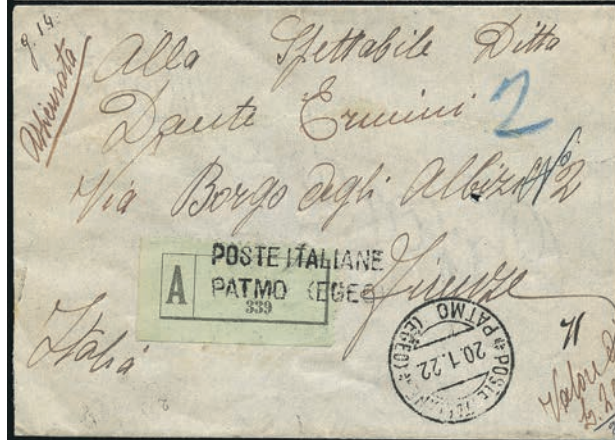 g. 14.
Assicurata
Alla Spettabile Ditta
Dante Ermini 2
Via Borgo degli Albizi No 2
Firenze
A
POSTE ITALIANE
PATMO (EGEO)
339
Italia
POSTE ITALIANE
PATMO (EGEO)
20.1.22
Valore